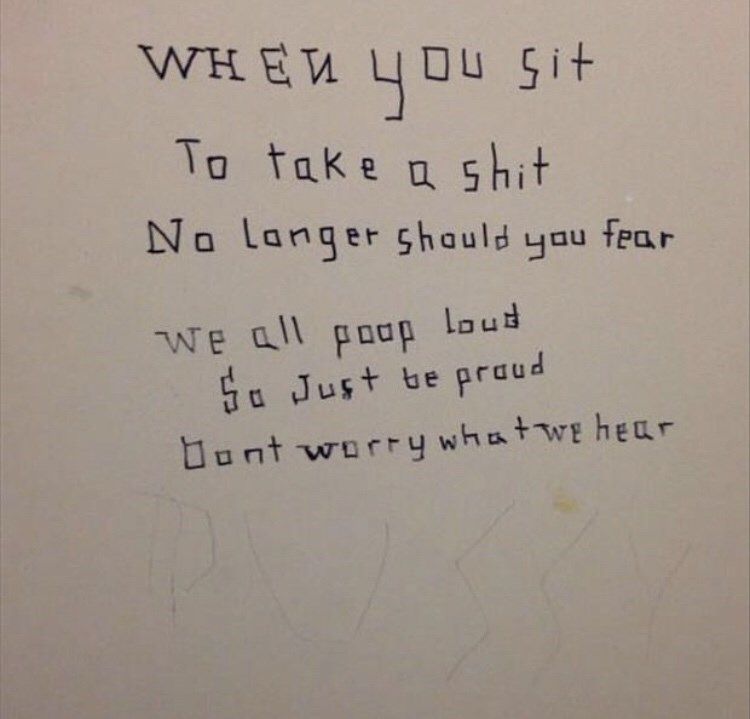 WHEN you sit
To take a shit
No Longer should you fear
we all poop loud
So Just be proud
Dont worry what we hear
PUSSY